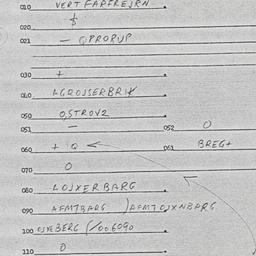 010 VERT FARFREJRN
020
021 — OPROPUP
030 +
040 AGROSSERBRIK
050 OSTROV2
051 — 052 O
060 + Q 061 BREG+
070 O
080 LOJXERBARG
090 AFMTBARG )AFMTOJXNBARG
100 OJXEBERG (/006090
110 O